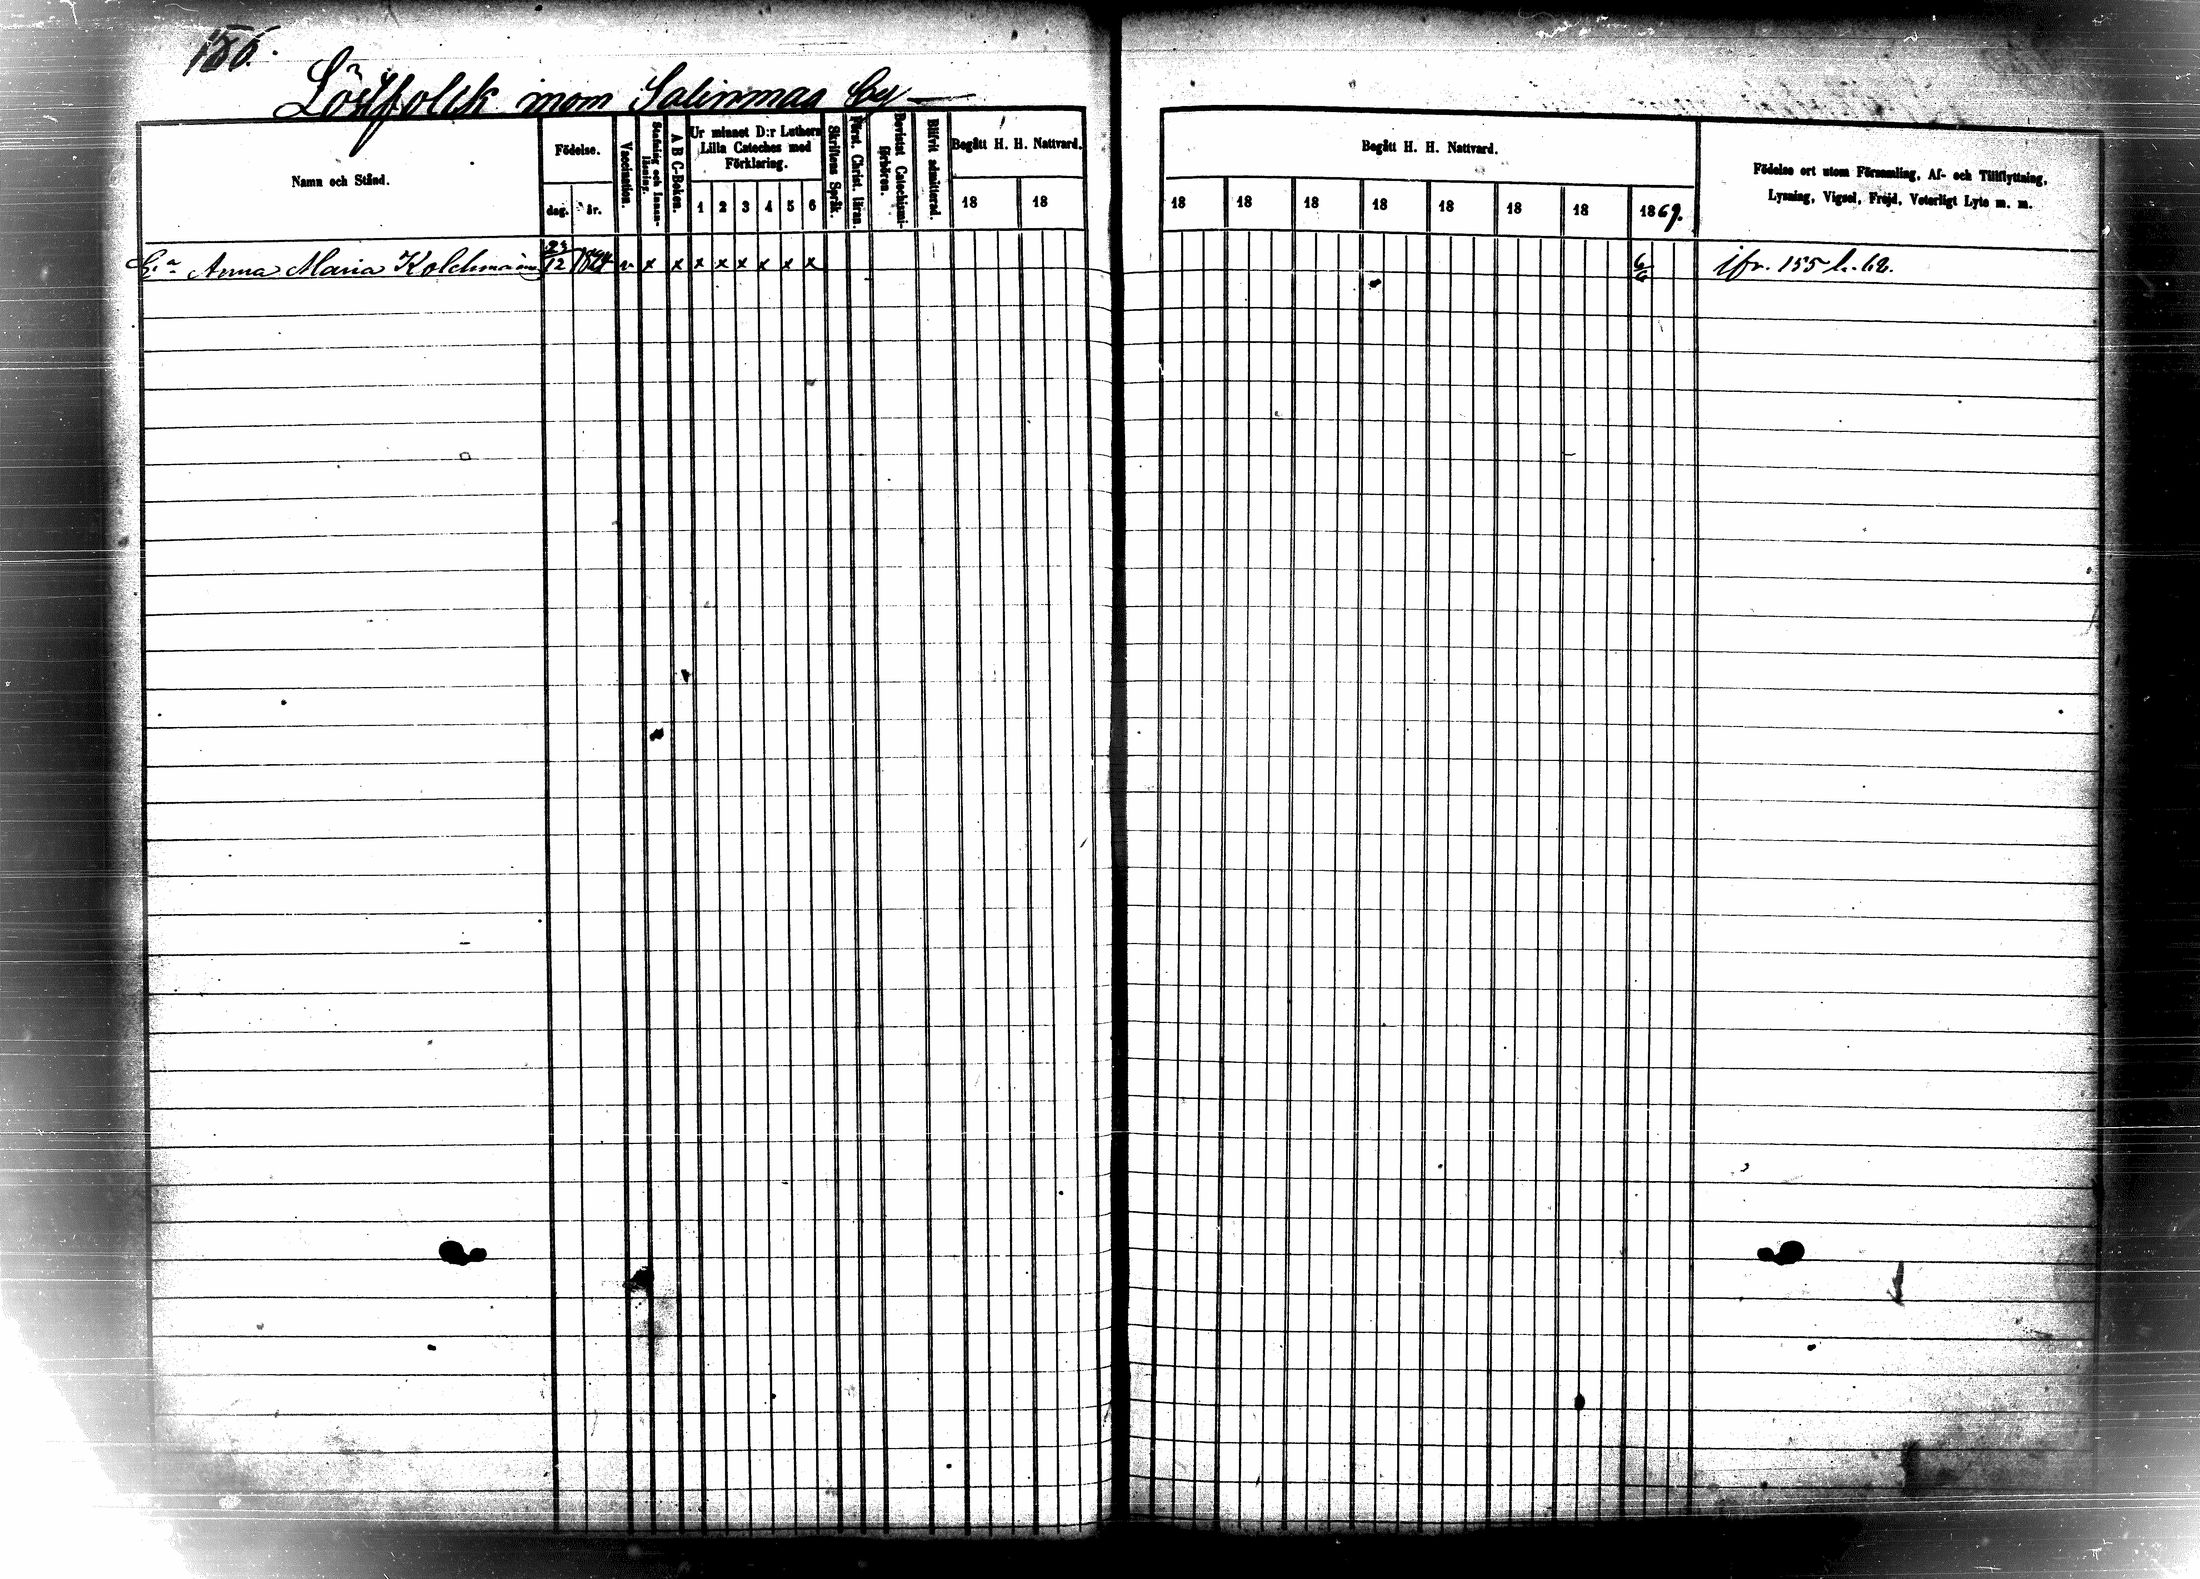 156.
Löst folck inom Salinmaa by
Namn och Stånd.
Födelse.
dag. år.
Vaccination.
Stafning och Innanläsning.
A B C-Boken.
Ur minnet D:r Luthers Lilla Cateches med Förklaring.
1 2 3 4 5 6
Skriftens Språk.
Först. Christ. läran.
Bevistat Catechismiförhören.
Blifvit admitterad.
Begått H. H. Nattvard.
18 18
Begått H. H. Nattvard.
18 18 18 18 18 18 18 1869.
Födelse ort utom Församling, Af- och Tillflyttning,
Lysning, Vigsel, Frejd, Veterligt Lyte m. m.
Anna Maria 23/12 v x x x x x x x x 6/6 jfr. 155